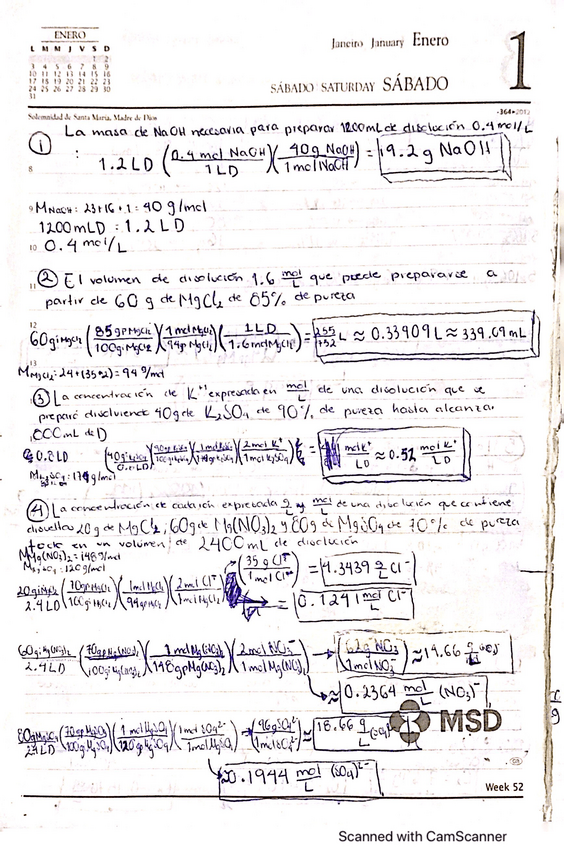 ENERO
L M M J V S D
1 2
3 4 5 6 7 8 9
10 11 12 13 14 15 16
17 18 19 20 21 22 23
24 25 26 27 28 29 30
31
Janeiro January Enero
1
SÁBADO SATURDAY SÁBADO
Solemnidad de Santa María, Madre de Dios
① La masa de NaOH necesaria para preparar 1200mL de disolución 0.4 mol/L
8 : 1.2 LD (0.4 mol NaOH / 1 LD)(40g NaOH / 1 mol NaOH) = 19.2 g NaOH
9 M NaOH: 23+16+1=40 g/mol
1200mLD = 1.2 LD
10 0.4 mol/L
② El volumen de disolución 1.6 mol/L que puede prepararse a
11
partir de 60 g de MgCl2 de 85% de pureza
12
60giMgCl2 (85gpMgCl2 / 100giMgCl2)(1molMgCl2 / 94gpMgCl2)(1LD / 1.6molMgCl2) = L ≈ 0.33909 L ≈ 339.69 mL
13
M MgCl2: 24+(35*2)=94 g/mol
③ La concentración de K+1 expresada en mol/L de una disolución que se
preparó disolviendo 40g de K2SO4 de 90% de pureza hasta alcanzar
800 mL de D
0.8 LD = mol K+ / LD ≈ 0.52 mol K+ / LD
④ La concentración de cada ion expresada g/L y mol/L de una disolución que contiene
disueltos 20g de MgCl2, 60g de Mg(NO3)2 y 80g de MgSO4 de 70% de pureza
todo en un volumen de 2400 mL de disolución
M Mg(NO3)2 = 148 g/mol
M MgSO4 = 120 g/mol
(35 g Cl- / 1 mol Cl-) = 4.3439 g/L Cl-
20giMgCl2 / 2.4 LD (70gpMgCl2 / 100giMgCl2)(1molMgCl2 / 94gpMgCl2)(2mol Cl- / 1molMgCl2) = 0.1241 mol/L Cl-
60giMg(NO3)2 / 2.4 LD (70gpMg(NO3)2 / 100giMg(NO3)2)(1molMg(NO3)2 / 148gpMg(NO3)2)(2mol NO3- / 1molMg(NO3)2) → (62g NO3- / 1mol NO3-) ≈ 14.66 g/L NO3-
≈ 0.2364 mol/L (NO3)-
80gMgSO4 / 2.4 LD (70gpMgSO4 / 100gMgSO4)(1molMgSO4 / 120gpMgSO4)(1mol SO4 2- / 1molMgSO4) → (96g SO4 2- / 1mol SO4 2-) ≈ 18.66 g/L (SO4)
MSD
≈ 0.1944 mol/L (SO4)2-
Week 52
Scanned with CamScanner